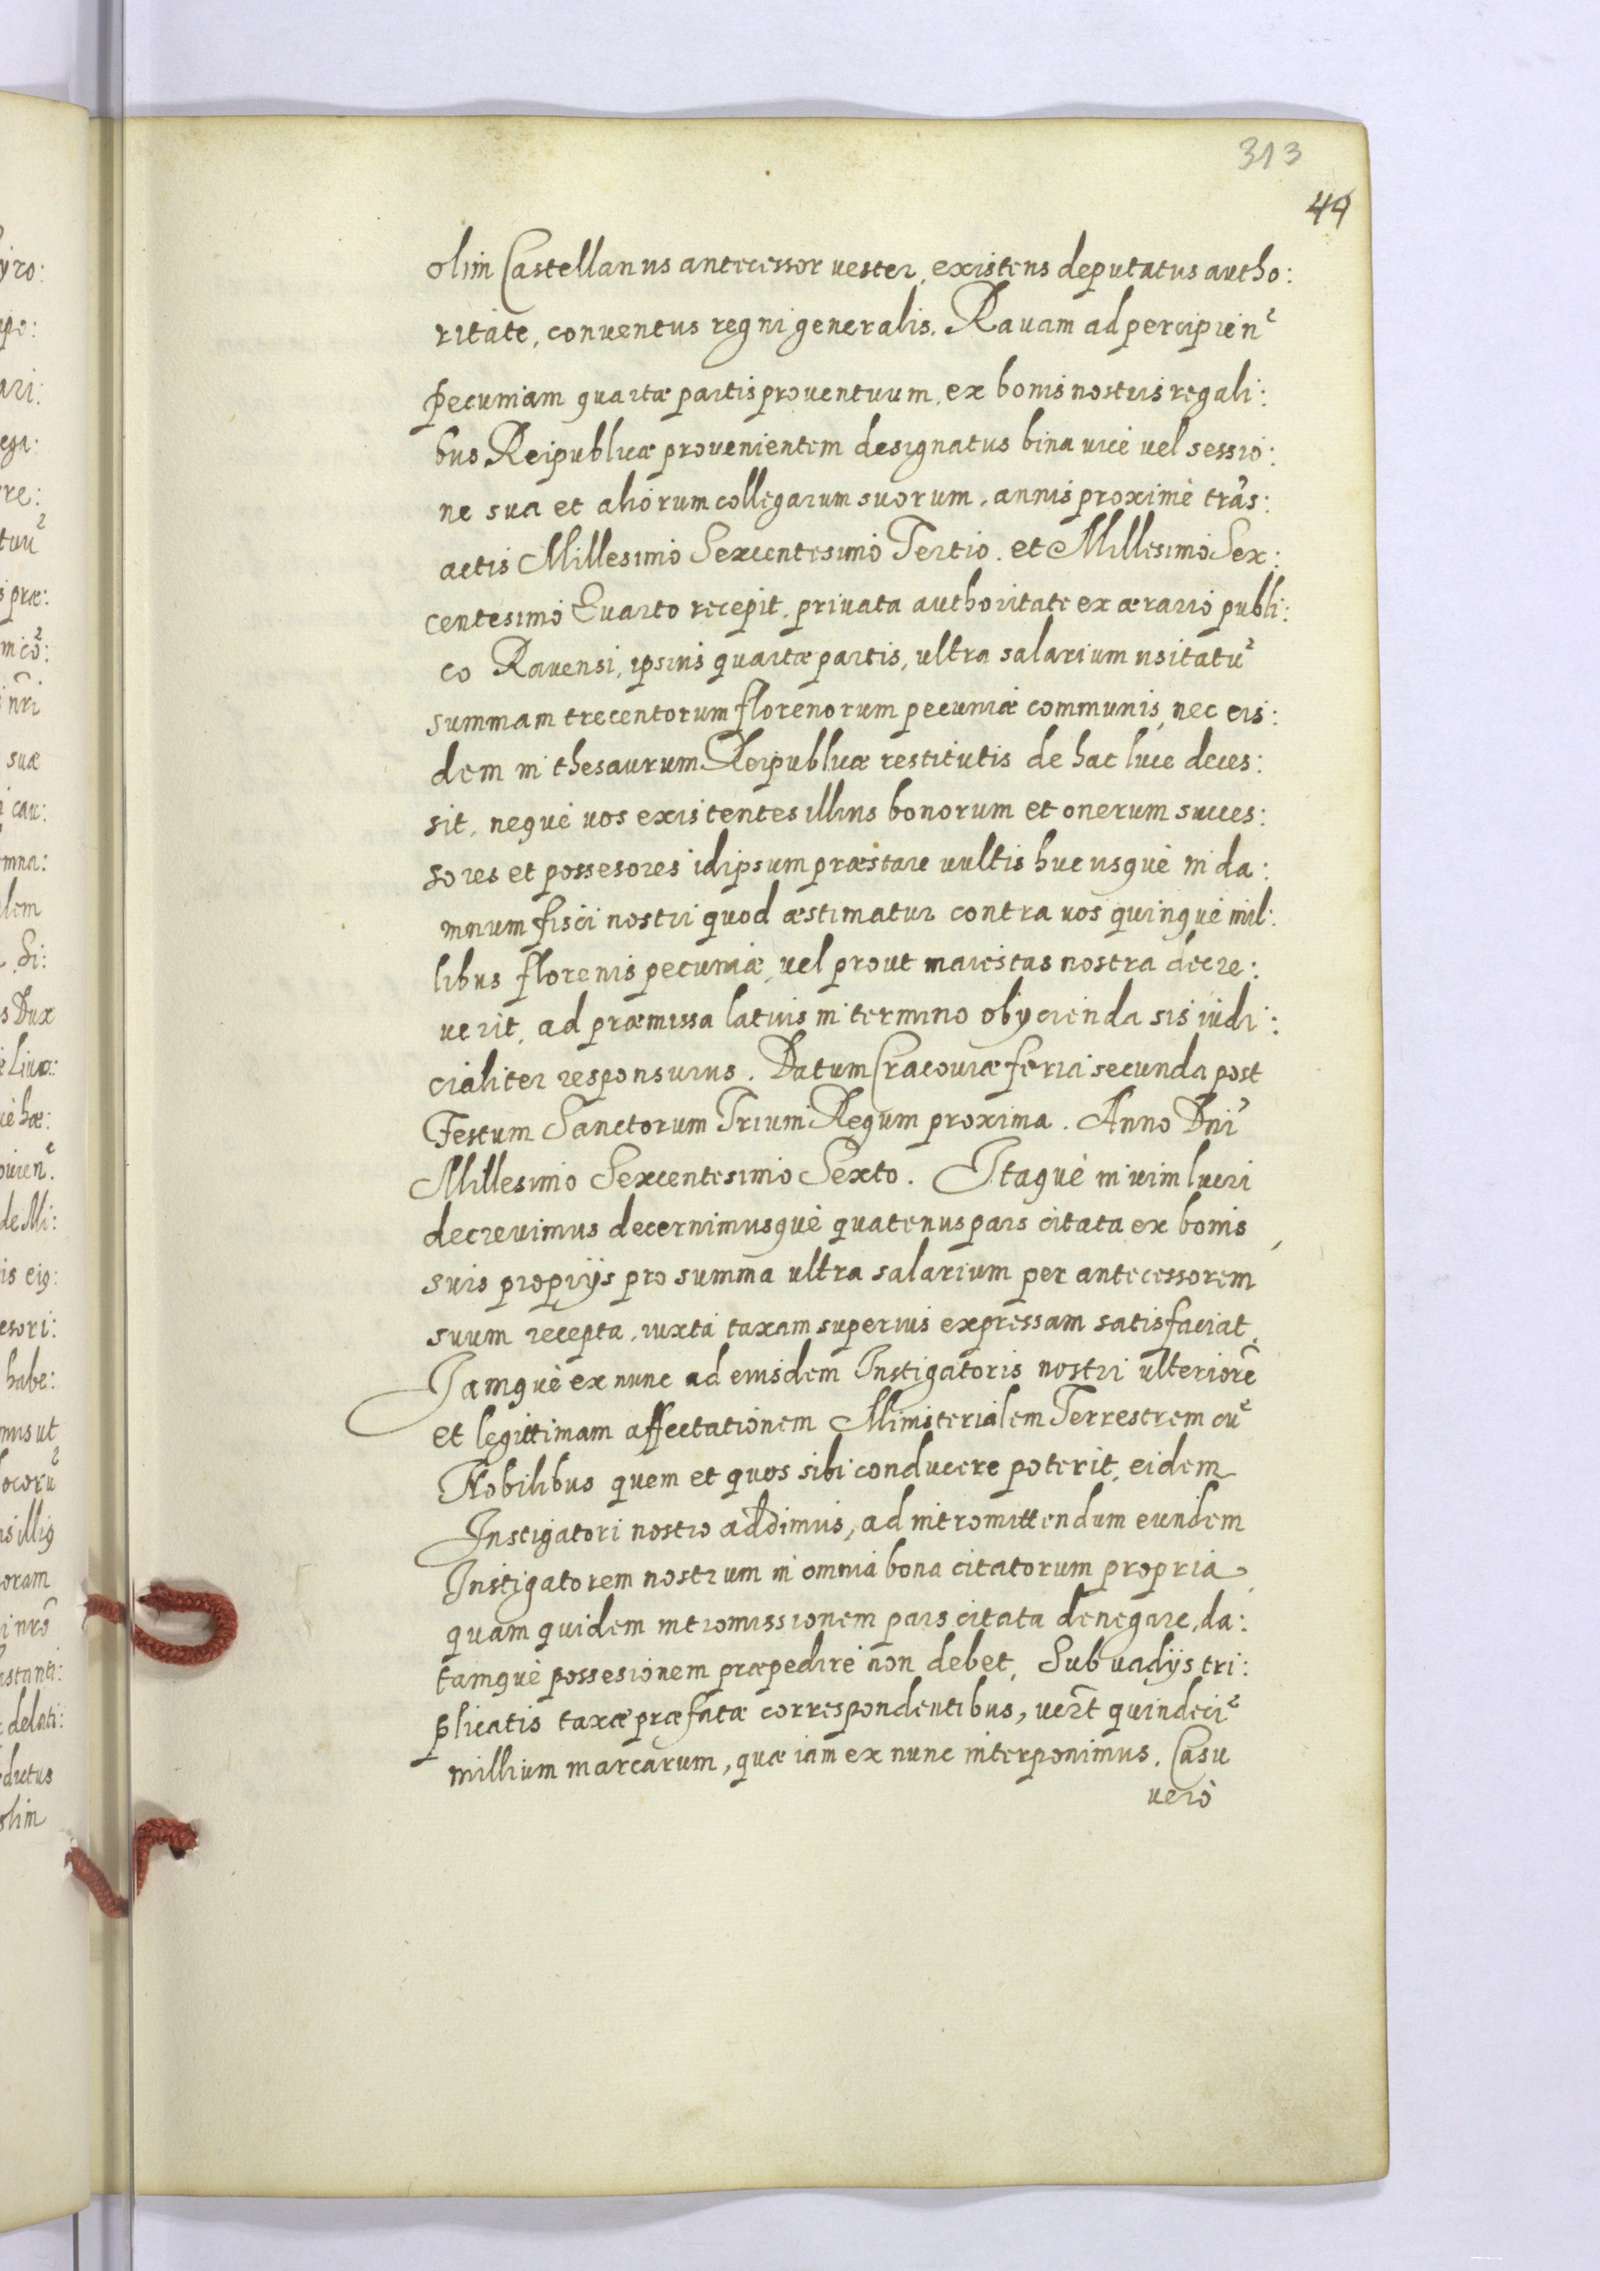 313
49
olim Castellanus antecessor vester, existens deputatus autho:
ritate, conventus regni generalis, Ravam ad percipien̄
pecuniam quartæ partis proventuum, ex bonis nostris regali:
bus Reipublicæ provenientem designatus bina vice vel sessio:
ne sua et aliorum collegarum suorum, annis proximè trās:
actis Millesimo Sexcentesimo Tertio, et Millesimo Sex:
centesimo Quarto recepit, privata authoritate ex ærario publi:
co Ravensi, ipsius quartæ partis, ultra salarium usitatū
summam trecentorum florenorum pecuniæ communis, nec eis:
dem in thesaurum Reipublicæ restitutis de hac luce deces:
sit, nequè vos existentes illius bonorum et onerum succes:
sores et possesores idipsum præstare vultis huc usquè in da:
mnum fisci nostri quod æstimatur contra vos quinquè mil:
libus florenis pecuniæ, vel prout maiestas nostra decre:
verit, ad præmissa latius in termino obÿcienda sis iudi:
cialiter responsurus. Datum Cracoviæ feria secunda post
Festum Sanctorum Trium Regum proxima. Anno Dn̄i
Millesimo Sexcentesimo Sexto. Itaquè in vim lucri
decrevimus decernimusquè quatenus pars citata ex bonis
suis proprijs pro summa ultra salarium per antecessorem
suum recepta, iuxta taxam superius expressam satisfaciat,
Iamquè ex nunc ad eiusdem Instigatoris nostri ulteriorē
et legittimam affectationem Ministerialem Terrestrem cū
Nobilibus quem et quos sibi conducere poterit, eidem
Instigatori nostro addimus, ad intromittendum eundem
Instigatorem nostrum in omnia bona citatorum propria,
quam quidem intromissionem pars citata denegare, da:
tamquè possesionem præpedire non debet, Sub vadÿs tri:
plicatis taxæ præfatæ correspondentibus, ver̄t quindecī
millium marcarum, quæ iam ex nunc interponimus. Casu
verò